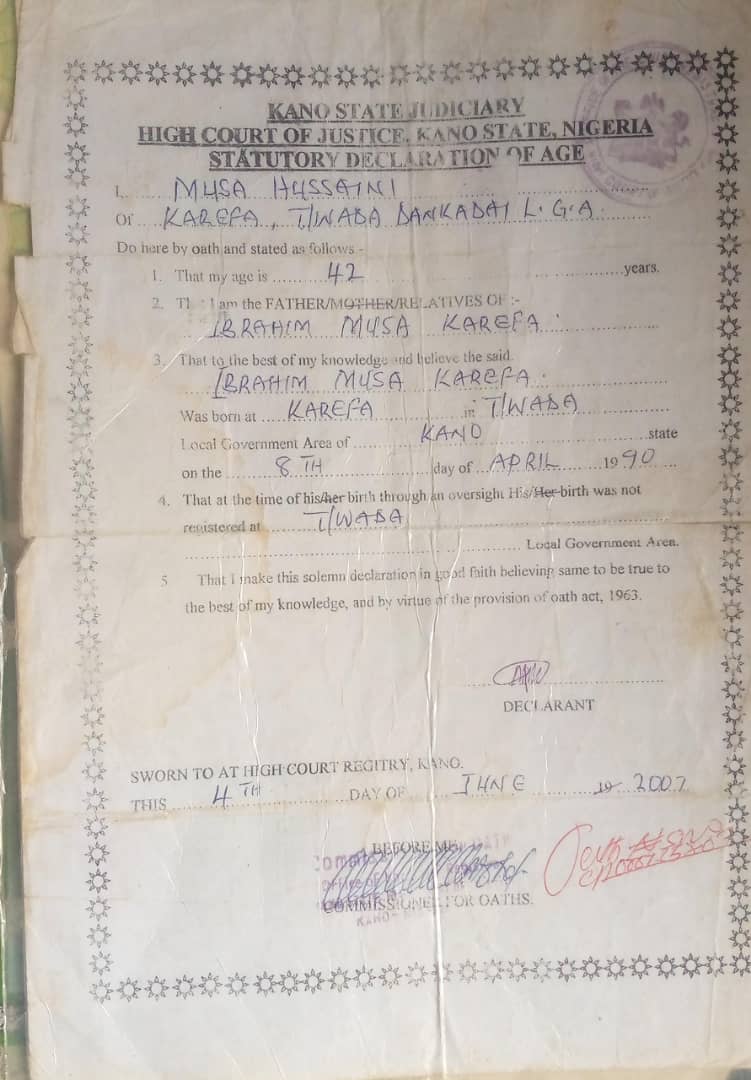 KANO STATE JUDICIARY
HIGH COURT OF JUSTICE, KANO STATE, NIGERIA
STATUTORY DECLARATION OF AGE
I, MUSA HUSSAINI
Of KAREFA, T/WADA DANKADAI L.G.A.
Do here by oath and stated as follows -
1. That my age is 42 years.
2. I am the FATHER/MOTHER/RELATIVES OF :-
IBRAHIM MUSA KAREFA.
3. That to the best of my knowledge and believe the said.
IBRAHIM MUSA KAREFA.
Was born at KAREFA in T/WADA
Local Government Area of KANO state
on the 8TH day of APRIL 1990
4. That at the time of his/her birth through an oversight His/Her birth was not
registered at T/WADA
Local Government Area.
5 That I make this solemn declaration in good faith believing same to be true to
the best of my knowledge, and by virtue of the provision of oath act, 1963.
DECLARANT
SWORN TO AT HIGH COURT REGITRY, KANO.
THIS 4TH DAY OF JUNE 19 2007
BEFORE ME
COMMISSIONER FOR OATHS.